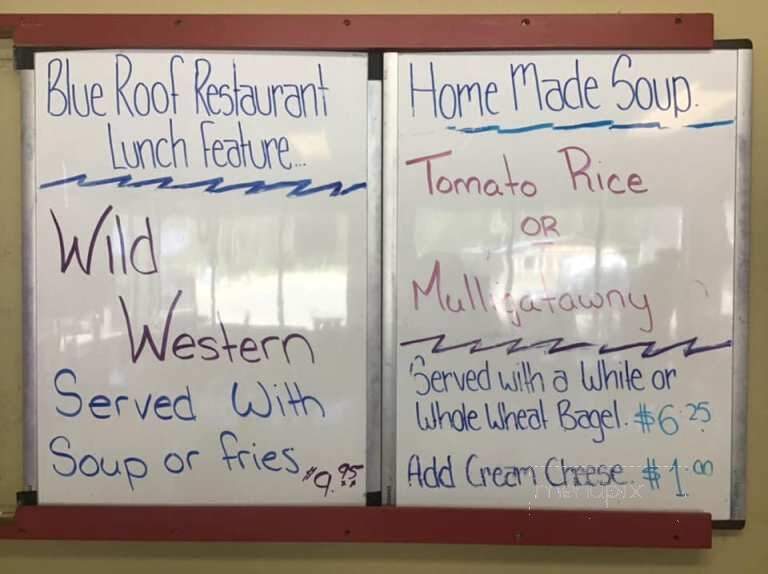 Blue Roof Restaurant
Lunch Feature...
Wild
Western
Served With
Soup or fries
$9.95
Home Made Soup.
Tomato Rice
OR
Mulligatawny
Served with a White or
Whole Wheat Bagel. $6.25
Add Cream Cheese. $1.00
menupix